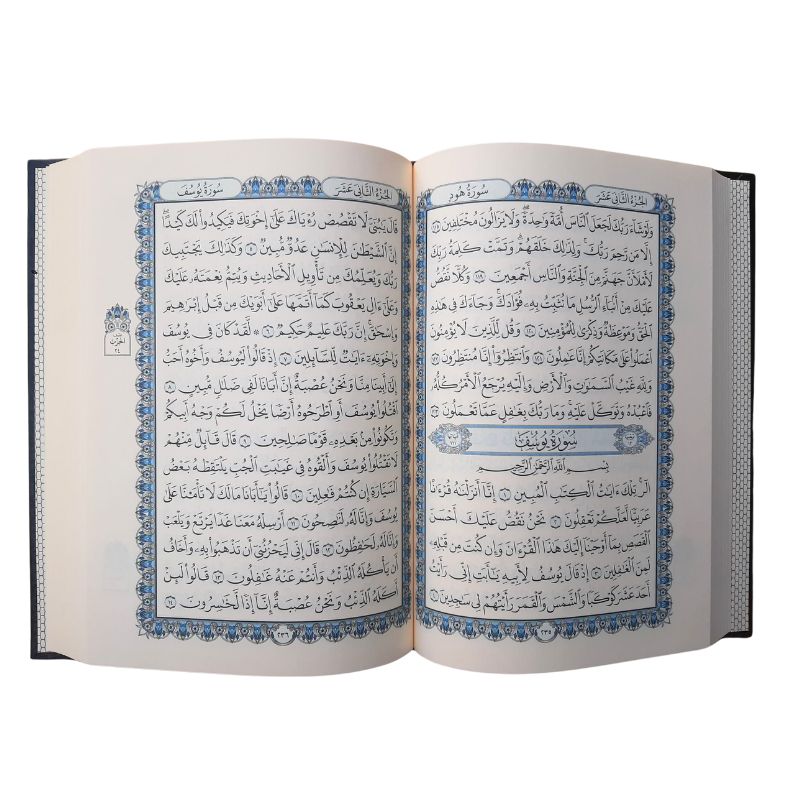 الجزء الثاني عشر
سورة هود
ولو شاء ربك لجعل الناس أمة واحدة ولا يزالون مختلفين ١١٨
إلا من رحم ربك ولذلك خلقهم وتمت كلمة ربك
لأملأن جهنم من الجنة والناس أجمعين ١١٩ وكلا نقص
عليك من أنباء الرسل ما نثبت به فؤادك وجاءك في هذه
الحق وموعظة وذكرى للمؤمنين ١٢٠ وقل للذين لا يؤمنون
اعملوا على مكانتكم إنا عاملون ١٢١ وانتظروا إنا منتظرون ١٢٢
ولله غيب السموات والأرض وإليه يرجع الأمر كله
فاعبده وتوكل عليه وما ربك بغافل عما تعملون ١٢٣
سورة يوسف
بسم الله الرحمن الرحيم
الر تلك ءايت الكتب المبين ١ إنا أنزلنه قرءنا
عربيا لعلكم تعقلون ٢ نحن نقص عليك أحسن
القصص بما أوحينا إليك هذا القرءان وإن كنت من قبله
لمن الغفلين ٣ إذ قال يوسف لأبيه يأبت إني رأيت
أحد عشر كوكبا والشمس والقمر رأيتهم لي سجدين ٤
٢٣٥
الجزء الثاني عشر
سورة يوسف
قال يبني لا تقصص رءياك على إخوتك فيكيدوا لك كيدا
إن الشيطن للإنسن عدو مبين ٥ وكذلك يجتبيك
ربك ويعلمك من تأويل الأحاديث ويتم نعمته عليك
وعلى ءال يعقوب كما أتمها على أبويك من قبل إبرهيم
وإسحق إن ربك عليم حكيم ٦ ۞ لقد كان في يوسف
وإخوته ءايت للسائلين ٧ إذ قالوا ليوسف وأخوه أحب
إلى أبينا منا ونحن عصبة إن أبانا لفي ضلل مبين ٨
اقتلوا يوسف أو اطرحوه أرضا يخل لكم وجه أبيكم
وتكونوا من بعده قوما صلحين ٩ قال قائل منهم
لا تقتلوا يوسف وألقوه في غيبت الجب يلتقطه بعض
السيارة إن كنتم فعلين ١٠ قالوا يأبانا ما لك لا تأمنا على
يوسف وإنا له لنصحون ١١ أرسله معنا غدا يرتع ويلعب
وإنا له لحفظون ١٢ قال إني ليحزنني أن تذهبوا به وأخاف
أن يأكله الذئب وأنتم عنه غفلون ١٣ قالوا لئن
أكله الذئب ونحن عصبة إنا إذا لخسرون ١٤
الحزب
٢٤
٢٣٦